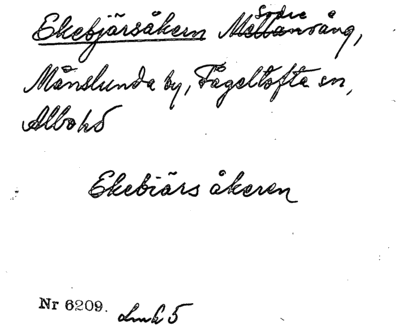 Ekebjärsåkern Södre Mellanvång,
Månslunda by, Fågeltofta sn,
Albo hd
Ekebiärs åkeren
Nr 6209. Lmk 5